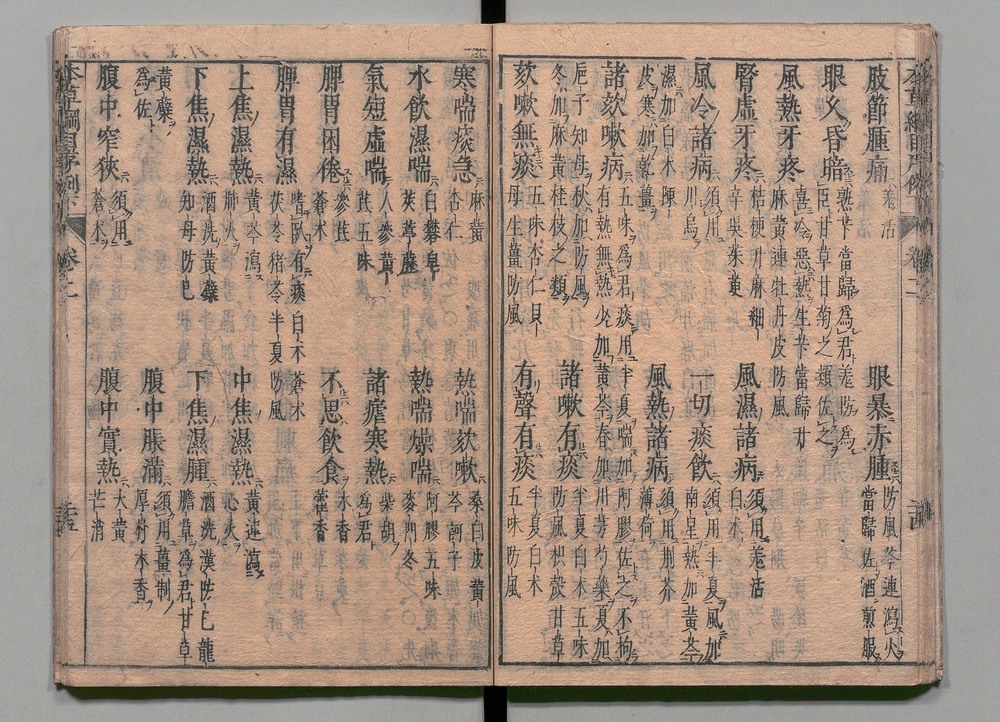 肢節腫痛 羌活
眼暴赤腫 防風芩連瀉火 當歸佐酒煎服
眼久昏暗 熟苄當歸爲君羌防爲 臣甘草甘菊之類佐之
風熱牙疼 喜冷惡熱生苄當歸升 麻黃連牡丹皮防風
腎虛牙疼 桔梗升麻細 辛吳茱萸
風濕諸病 須用羌活 白朮
風冷諸病 須用 川烏
一切痰飲 須用半夏風加 南星熱加黃芩
濕加白朮陳 皮寒加乾薑
風熱諸病 須用荆芥 薄荷
諸欬嗽病 五味爲君痰用半夏喘加阿膠佐之不拘 有熱無熱少加黃芩春加川芎芍藥夏加
巵子知母秋加防風 冬加麻黃桂枝之類
諸嗽有痰 半夏白朮五味 防風枳殼甘草
欬嗽無痰 五味杏仁貝 母生薑防風
有聲有痰 半夏白朮 五味防風
寒喘痰急 麻黃 杏仁
熱喘欬嗽 桑白皮黃 芩訶子
水飲濕喘 白礬皂 莢葶藶
熱喘燥喘 阿膠五味 麥門冬
氣短虛喘 人參黃 芪五味
諸瘧寒熱 柴胡 爲君
脾胃困倦 參芪 蒼朮
不思飲食 木香 藿香
脾胃有濕 嗜臥有痰白朮蒼朮 茯苓猪苓半夏防風
上焦濕熱 黃芩瀉 肺火
中焦濕熱 黃連瀉 心火
下焦濕熱 酒洗黃蘗 知母防己
下焦濕腫 酒洗漢防己龍 膽草爲君甘草
黃蘗 爲佐
腹中脹滿 須用薑制 厚朴木香
腹中窄狹 須用 蒼朮
腹中實熱 大黃 芒消
本草綱目序例下 卷二